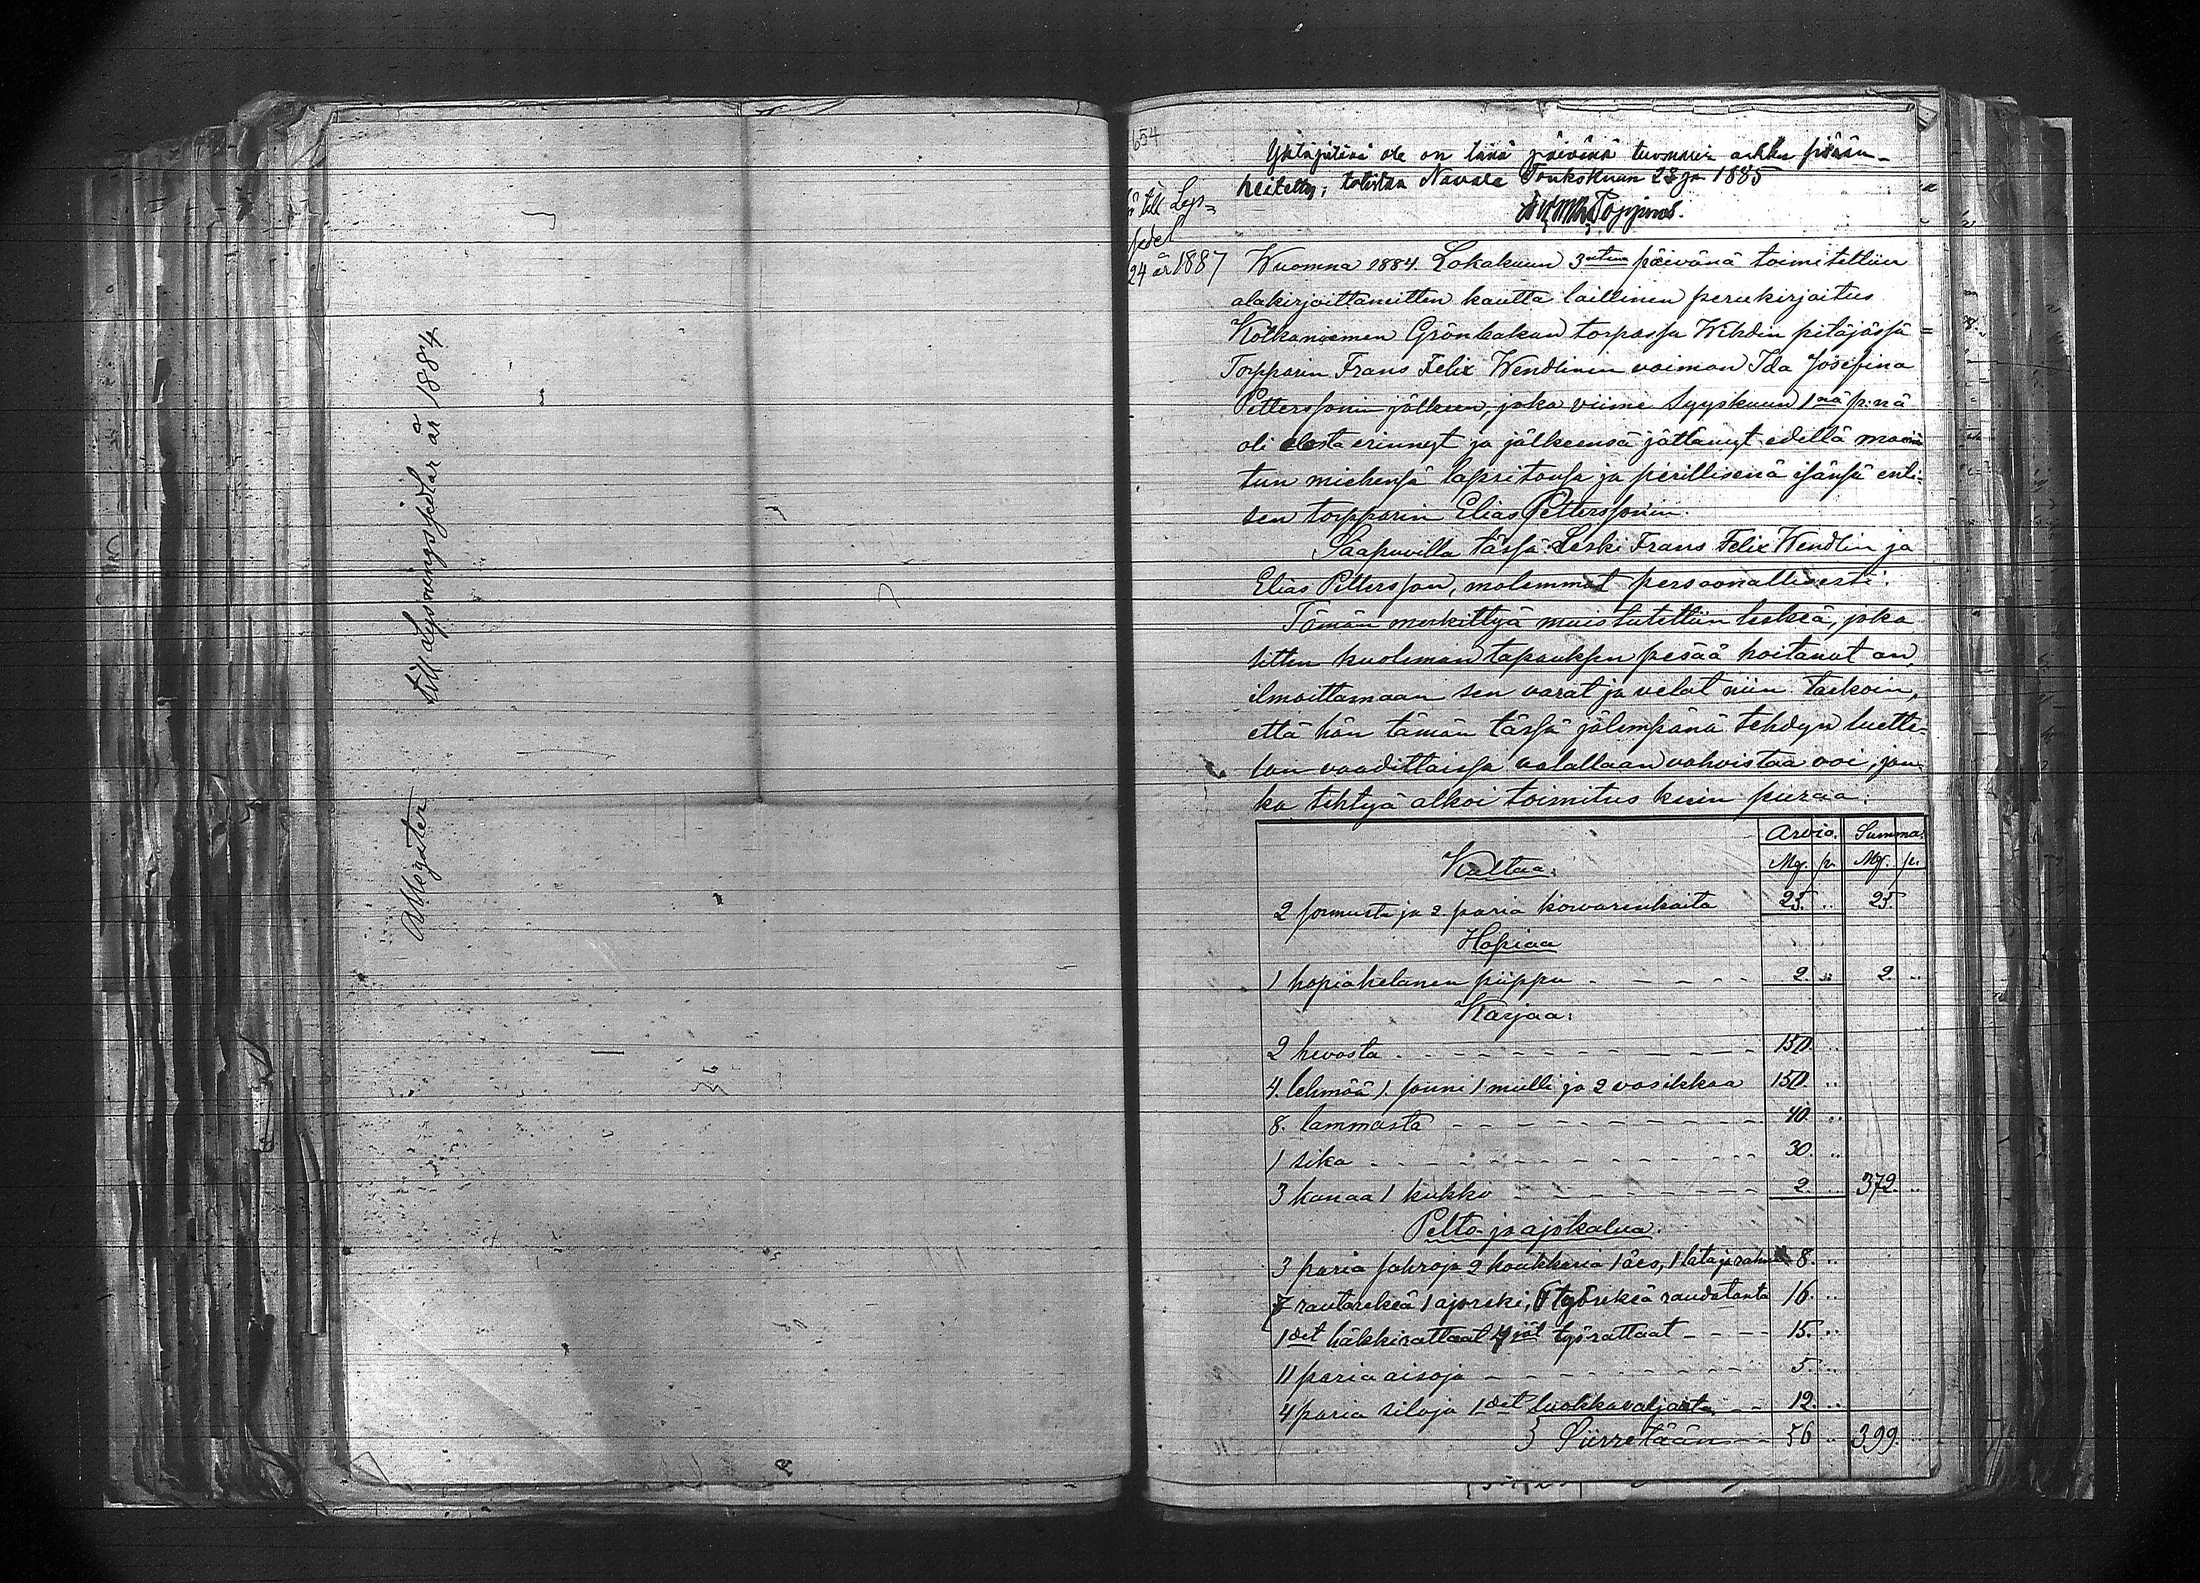 Attester till Lysningssedlar år 1884
654
till Lys=
sedel
24 år 1887
Yhtäpitävä ole on tänä päivänä tuomarin arkku pöään-
heitetty; todistaa Toukokuun 28 p. 1885
Wuonna 1884. Lokakuun 3 päivänä toimitettiin
alakirjoittaneitten kautta laillinen perukirjoitus
Kotkaniemen Grönbakan torpassa Wihdin pitäjässä
Torpparin Frans Felix Wendlinin vaimon Ida Josefina
Petterssonin jälkeen, joka viime Syyskuun 1nä p:nä
oli elosta erinnyt ja jälkeensä jättänyt edellä mainit
tun miehensä lapsitonsa ja perillisenä isänsä enti-
sen torpparin Elias Petterssonin.
Saapuvilla tässä: Leski Frans Felix Wendlin ja
Elias Pettersson, molemmat persoonallisesti.
Tämän merkittyä muistutettiin leskeä, joka
sitten kuoleman tapauksen pesää hoitanut on,
ilmoittamaan sen varat ja velat niin tarkoin,
että hän tämän tässä jälempänä tehdyn luette-
lon vaadittaissa valallaan vahvistaa voi, jon-
ka tehtyä alkoi toimitus kuin puraa.
Arvio. Summa.
Kultaa: Mk. p. Mk. p.
2 sormusta ja 2 paria korvarenkaita 25. .. 25.
Hopiaa
1 hopiahelanen piippu - - - - 2. .. 2. ..
Karjaa:
2 hevosta - - - - 150. ..
4. lehmää 1. sonni 1 mulli ja 2 vasikkaa 150. ..
8. lammasta - - - - 40. ..
1 sika - - - - 30. ..
3 kanaa 1 kukko - - - - 2. .. 372. ..
Pelto- ja ajokalua.
3 paria sahroja 2 houkkaria 1 äes, 1 lata ja 8. ..
7 rautarekeä 1 ajoreki, 6 työrekeä raudatonta 16. ..
1det häkkirattaat 4jät työrattaat - - - - 15. ..
11 paria aisoja - - - - 5. ..
4 paria siloja 1det luokkavaljaita - - 12. ..
Siirretään - - 56 .. 399. ..